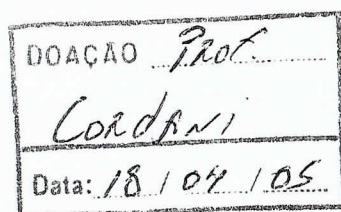 DOAÇÃO Prof.
Cordani
Data: 18 / 04 / 05